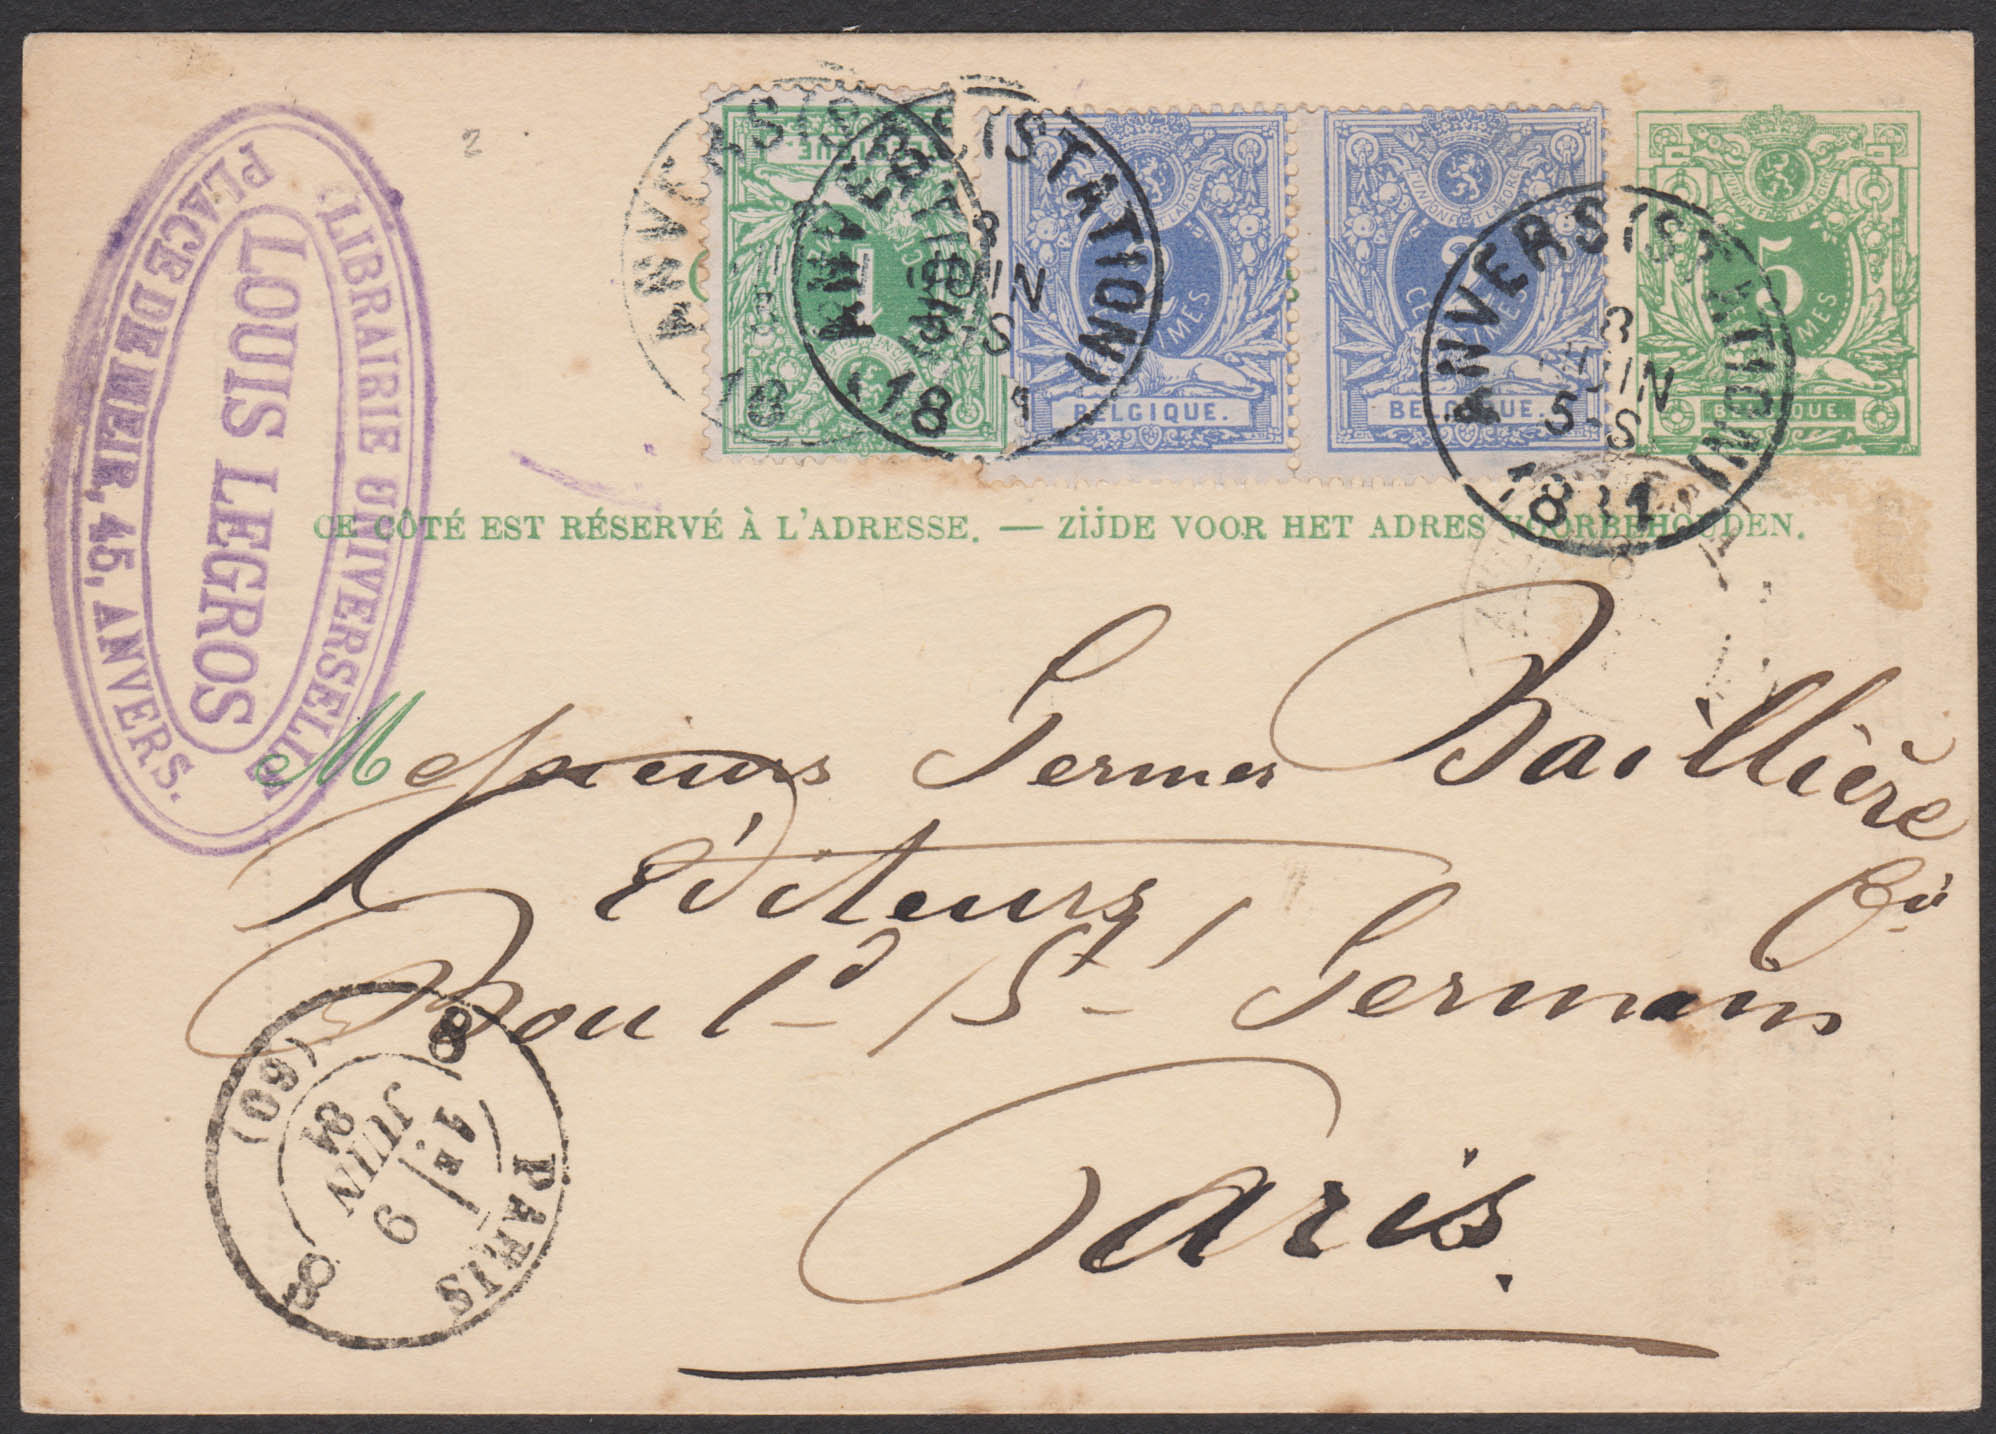 LIBRAIRIE UNIVERSELLE
LOUIS LEGROS
PLACE DE MEIR, 45, ANVERS.
2
BELGIQUE.
1
ANVERS (STATION)
8
JUIN
5-S
18
UNION FORCE
2
CENTIMES
BELGIQUE.
2
CENTIMES
BELGIQUE.
5
CENTIMES
BELGIQUE.
ANVERS (STATION)
8
JUIN
5-S
1884
CE CÔTÉ EST RÉSERVÉ À L'ADRESSE. — ZIJDE VOOR HET ADRES VOORBEHOUDEN.
Messieurs Germer Baillière
Cie
Éditeurs
Boul^d St Germain
Paris.
PARIS (60)
8 8
1E
9
JUIN
84